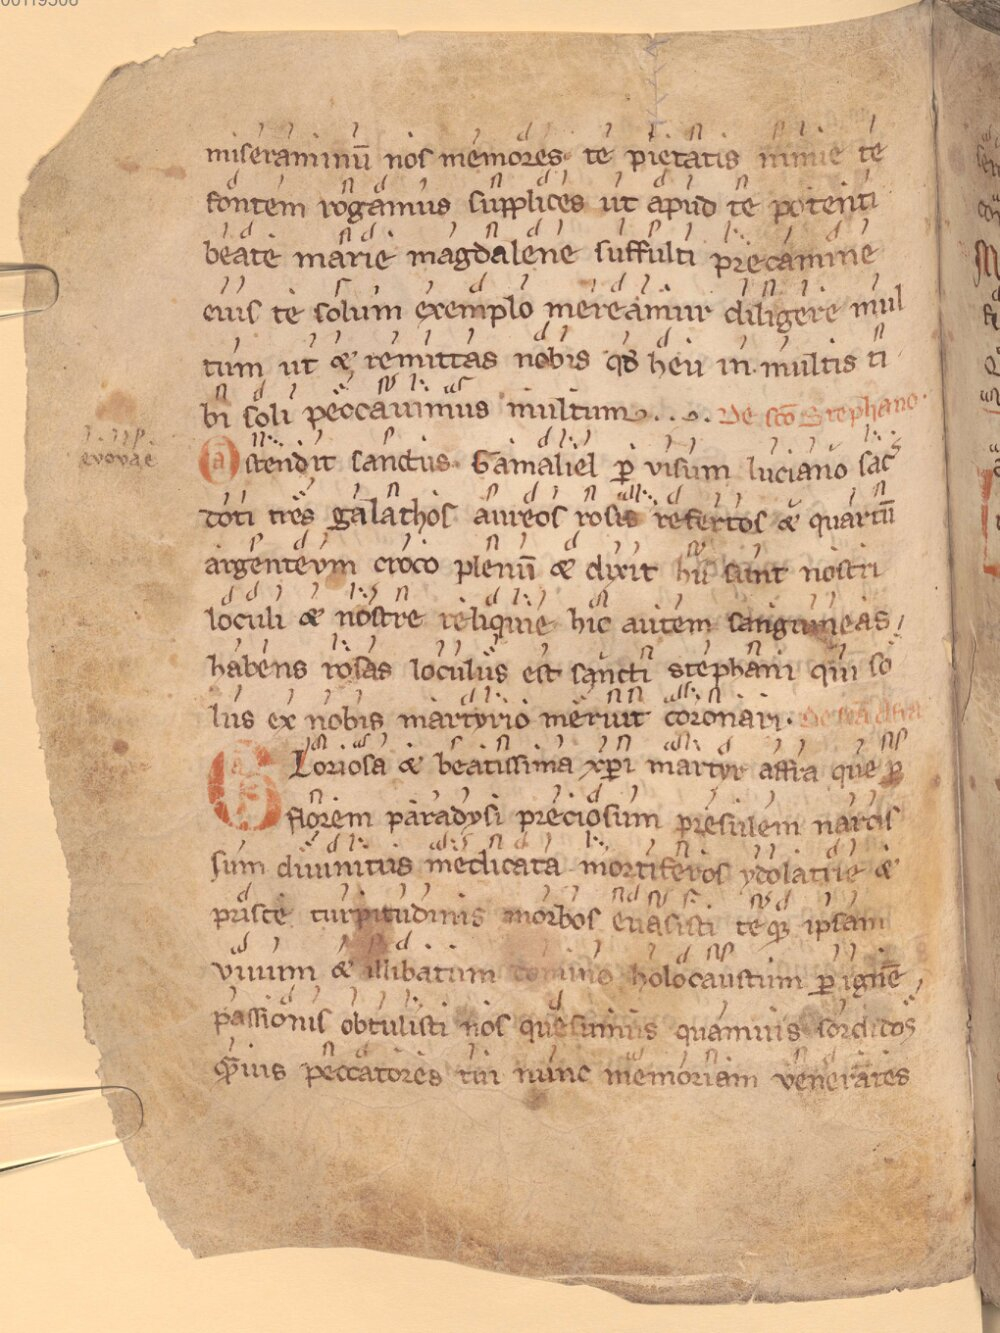 miseraminū nos memores te pietatis nimie te
fontem rogamus supplices ut apud te potenti
beate marie magdalene suffulti precamine
eius te solum exemplo mereamur diligere mul
tum ut & remittas nobis qđ heu in multis ti
bi soli peccauimus multum De sc̄o Stephano
euouae
Ostendit sanctus Gamaliel p̲ uisum luciano sac̄
doti tres galathos aureos rosis refertos & quartū
argenteum croco plenū & dixit hii sunt nostri
loculi & nostre reliquie hic autem sanguineas
habens rosas loculus est sancti stephani qui so
lus ex nobis martyrio meruit coronari. De sc̄a Affra
GLoriosa & beatissima xp̄i martyr affra que p̲
florem paradysi preciosum presulem narcis
sum diuinitus medicata mortiferos ydolatrie &
prisce turpitudinis morbos euasisti teq; ipsam
uiuum & illibatum holocaustum p̲ ignē
passionis obtulisti nos quesumus quamuis sordidos
peccatores tui nunc memoriam uenerātes